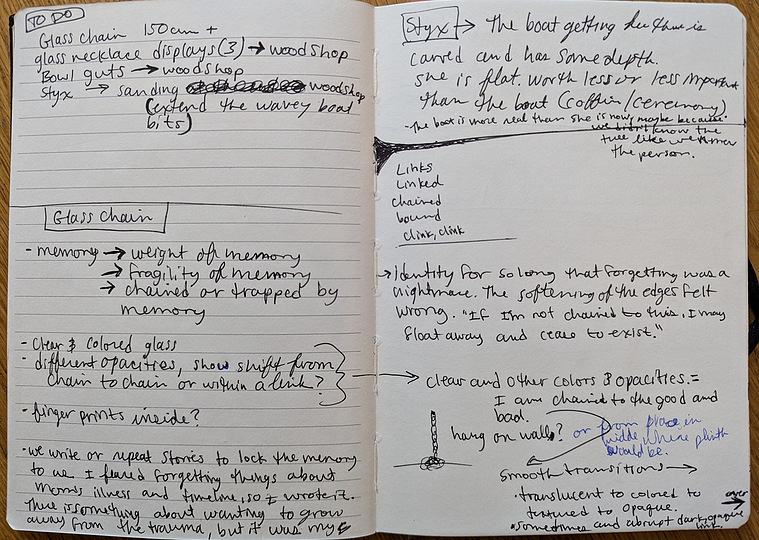 TO DO
Glass chain 150cm +
glass necklace displays (3) → woodshop
Bowl guts → woodshop
Styx → sanding woodshop
(extend the wavey boat
bits)
Glass chain
- memory → weight of memory
→ fragility of memory
→ chained or trapped by
memory
- clear & colored glass
- different opacities, show shift from
chain to chain or within a link?
- finger prints inside?
- we write or repeat stories to lock the memory
to us. I feared forgetting things about
Mom's illness and timeline, so I wrote it.
There is something about wanting to grow
away from the trauma, but it was my
Styx → The boat getting
carved and has some depth.
She is flat, worth less or less important
than the boat (coffin/ceremony)
- The boat is more real than she is now, maybe because
we didn't know the
tree like we knew
the person.
Links
Linked
chained
bound
clink, clink
→ Identity for so long that forgetting was a
nightmare. The softening of the edges felt
wrong. "If I'm not chained to this, I may
float away and cease to exist."
→ clear and other colors & opacities. =
I am chained to the good and
bad.
hang on wall? or from place in
middle where plinth
would be.
smooth transitions →
· translucent to colored to
textured to opaque.
· sometimes and abrupt dark, opaque
link.
over
→